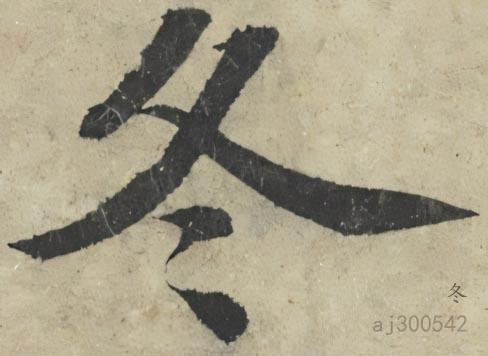 冬
冬
aj300542